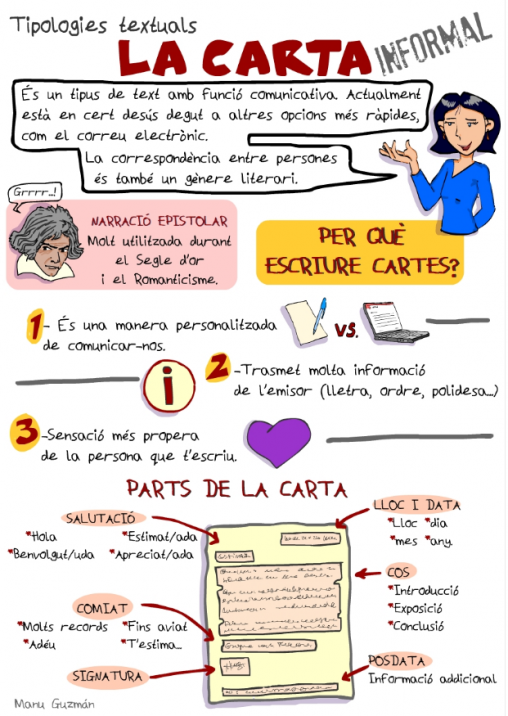 Tipologies textuals
LA CARTA INFORMAL
És un tipus de text amb funció comunicativa. Actualment
està en cert desús degut a altres opcions més ràpides,
com el correu electrònic.
La correspondència entre persones
és també un gènere literari.
Grrrr...!
NARRACIÓ EPISTOLAR
Molt utilitzada durant
el Segle d'or
i el Romanticisme.
PER QUÈ
ESCRIURE CARTES?
1- És una manera personalitzada
de comunicar-nos.
VS.
i
2-Trasmet molta informació
de l'emisor (lletra, ordre, polidesa...)
3-Sensació més propera
de la persona que t'escriu.
PARTS DE LA CARTA
SALUTACIÓ
*Hola *Estimat/ada
*Benvolgut/uda *Apreciat/ada
LLOC I DATA
*Lloc *dia
*mes *any
COS
*Introducció
*Exposició
*Conclusió
COMIAT
*Molts records *Fins aviat
*Adéu *T'estima...
SIGNATURA
POSDATA
Informació addicional
Manu Guzmán